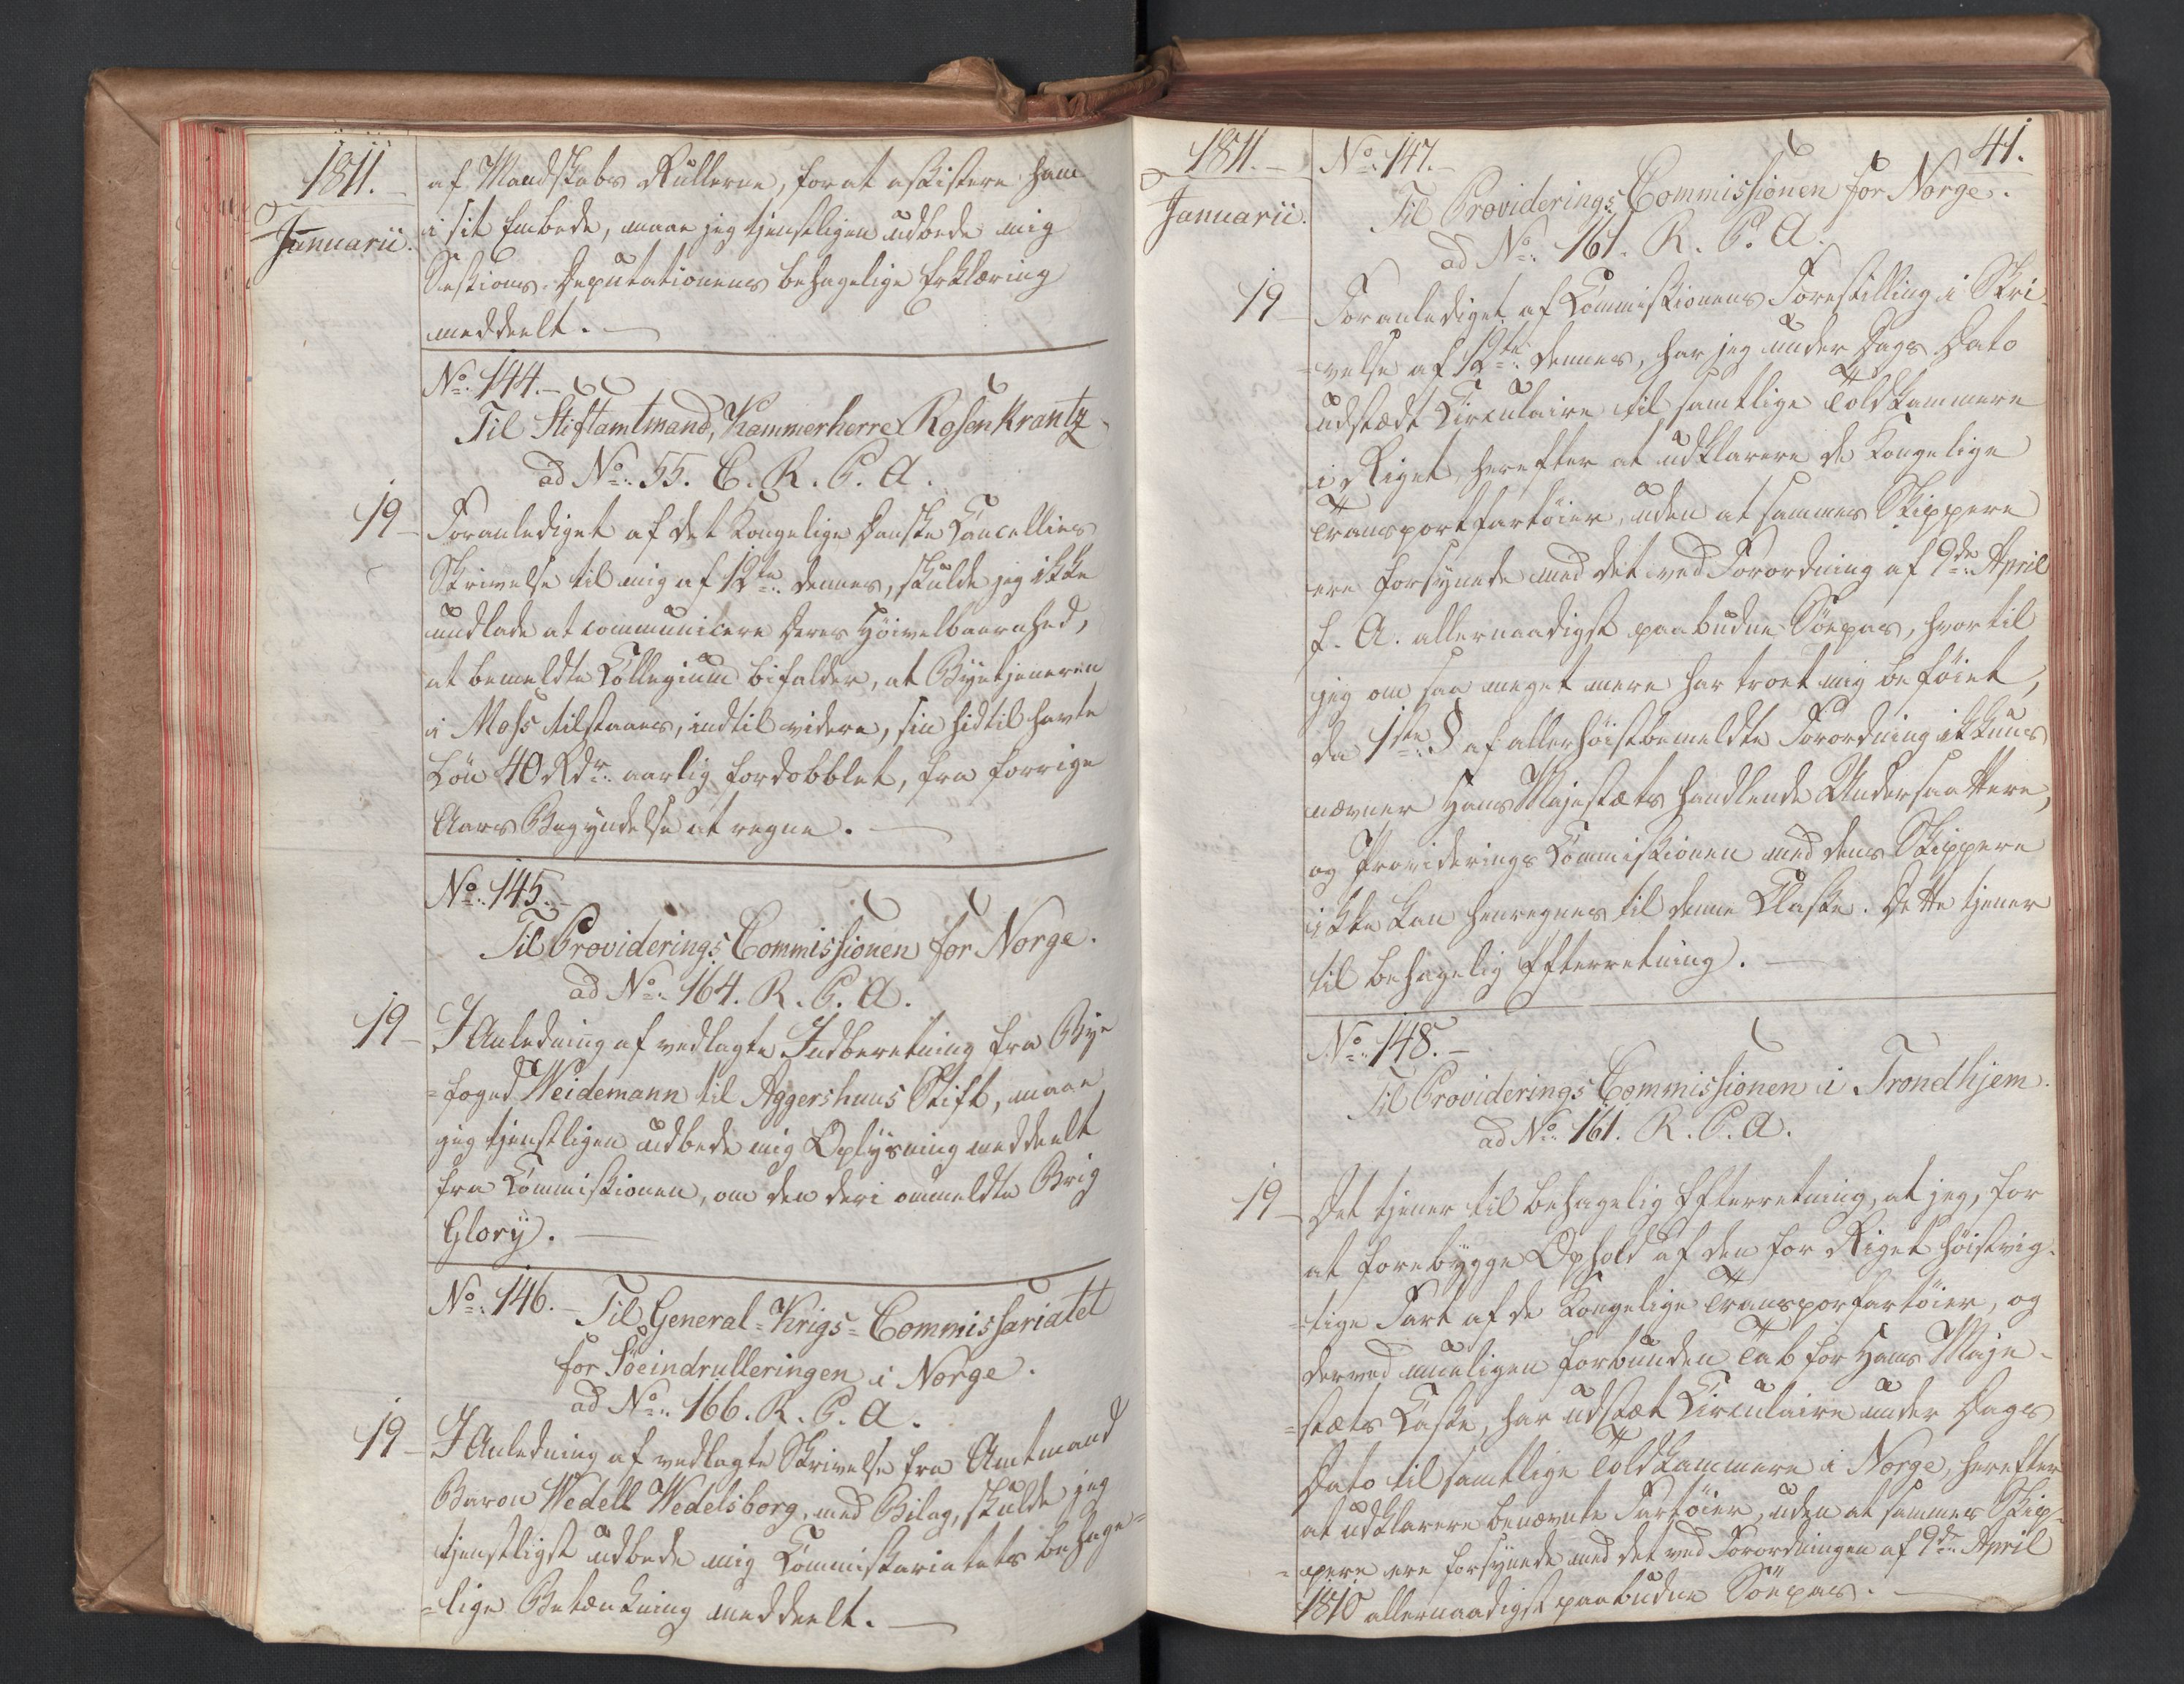 1811.
Januarii.
af Mandskabs Rullerne, for at assistere ham
i sit Embede, maae jeg tjenstligen udbede mig
Sessions-Deputationens behagelige Erklæring
meddeelt.
No. 144.
Til Stiftamtmand, Kammerherre Rosenkrantz
ad No. 55. C. R. P. A.
19 Foranlediget af det Kongelige Danske Cancellies
Skrivelse til mig af 12te dennes, skulde jeg ikke
undlade at communicere Deres Höivelbaarenhed,
at bemeldte Collegium bifalder, at Byetjeneren
i Moss tilstaaes, indtil videre, sin hidtil havte
Lön 40 Rdr. aarlig fordobblet, fra forrige
Aars Begyndelse at regne.
No. 145.
Til Provideringscommissionen for Norge.
ad No. 164. R. P. A.
19 I Anledning af vedlagte Indberetning fra Bye
=foged Weidemann til Aggershuus Stift, maae
jeg tjenstligen udbede mig Oplysning meddeelt
fra Commissionen, om den deri ommeldte Brig
Glory.
No. 146. Til General-Krigs-Commissariatet
for Söeindrulleringen i Norge.
ad No. 166. R. P. A.
19 I Anledning af vedlagte Skrivelse fra Amtmand
Baron Wedell Wedelsborg, med Bilag, skulde jeg
tjenstligst udbede mig Commissariatets behage=
=lige Betænkning meddeelt.
1811.
Januarii.
41.
No. 147.
Til Provideringscommissionen for Norge.
ad No. 161. R. P. A.
19 Foranlediget af Commissionens Forestilling i Skri-
=velse af 12te dennes, har jeg under Dags Dato
udstædt Circulaire til samtlige Toldkammere
i Riget, herefter at udklarere de Kongelige
Transportfartöier, uden at sammes Skippere
ere forsynede med det ved Forordning af 9de April
f. A. allernaadigst paabudne Söepas, hvortil
jeg om saa meget mere har troet mig beföiet,
da 1ste § af allerhöistbemeldte Forordning ikkuns
nævner Hans Majestæts handlende Undersaattere,
og Provideringscommissionen med dens Skippere
ikke kan henregnes til denne Classe. Dette tjener
til behagelig Efterretning.
No. 148.
Til Provideringscommissionen i Trondhjem.
ad No. 161. R. P. A.
19 Det tjener til behagelig Efterretning, at jeg, for
at forebygge Ophold af den for Riget höistvig-
=tige Fart af de Kongelige Transporfartöier, og
derved mueligen forbunden Tab for Hans Maje-
=stæts Casse, har udstæt Circulaire under Dags
Dato til samtlige Toldkammere i Norge, herefter
at udklarere benævnte Fartöier, uden at sammes Skip-
=pere ere forsynede med det ved Forordningen af 9de April
1810 allernaadigst paabudne Söepas.